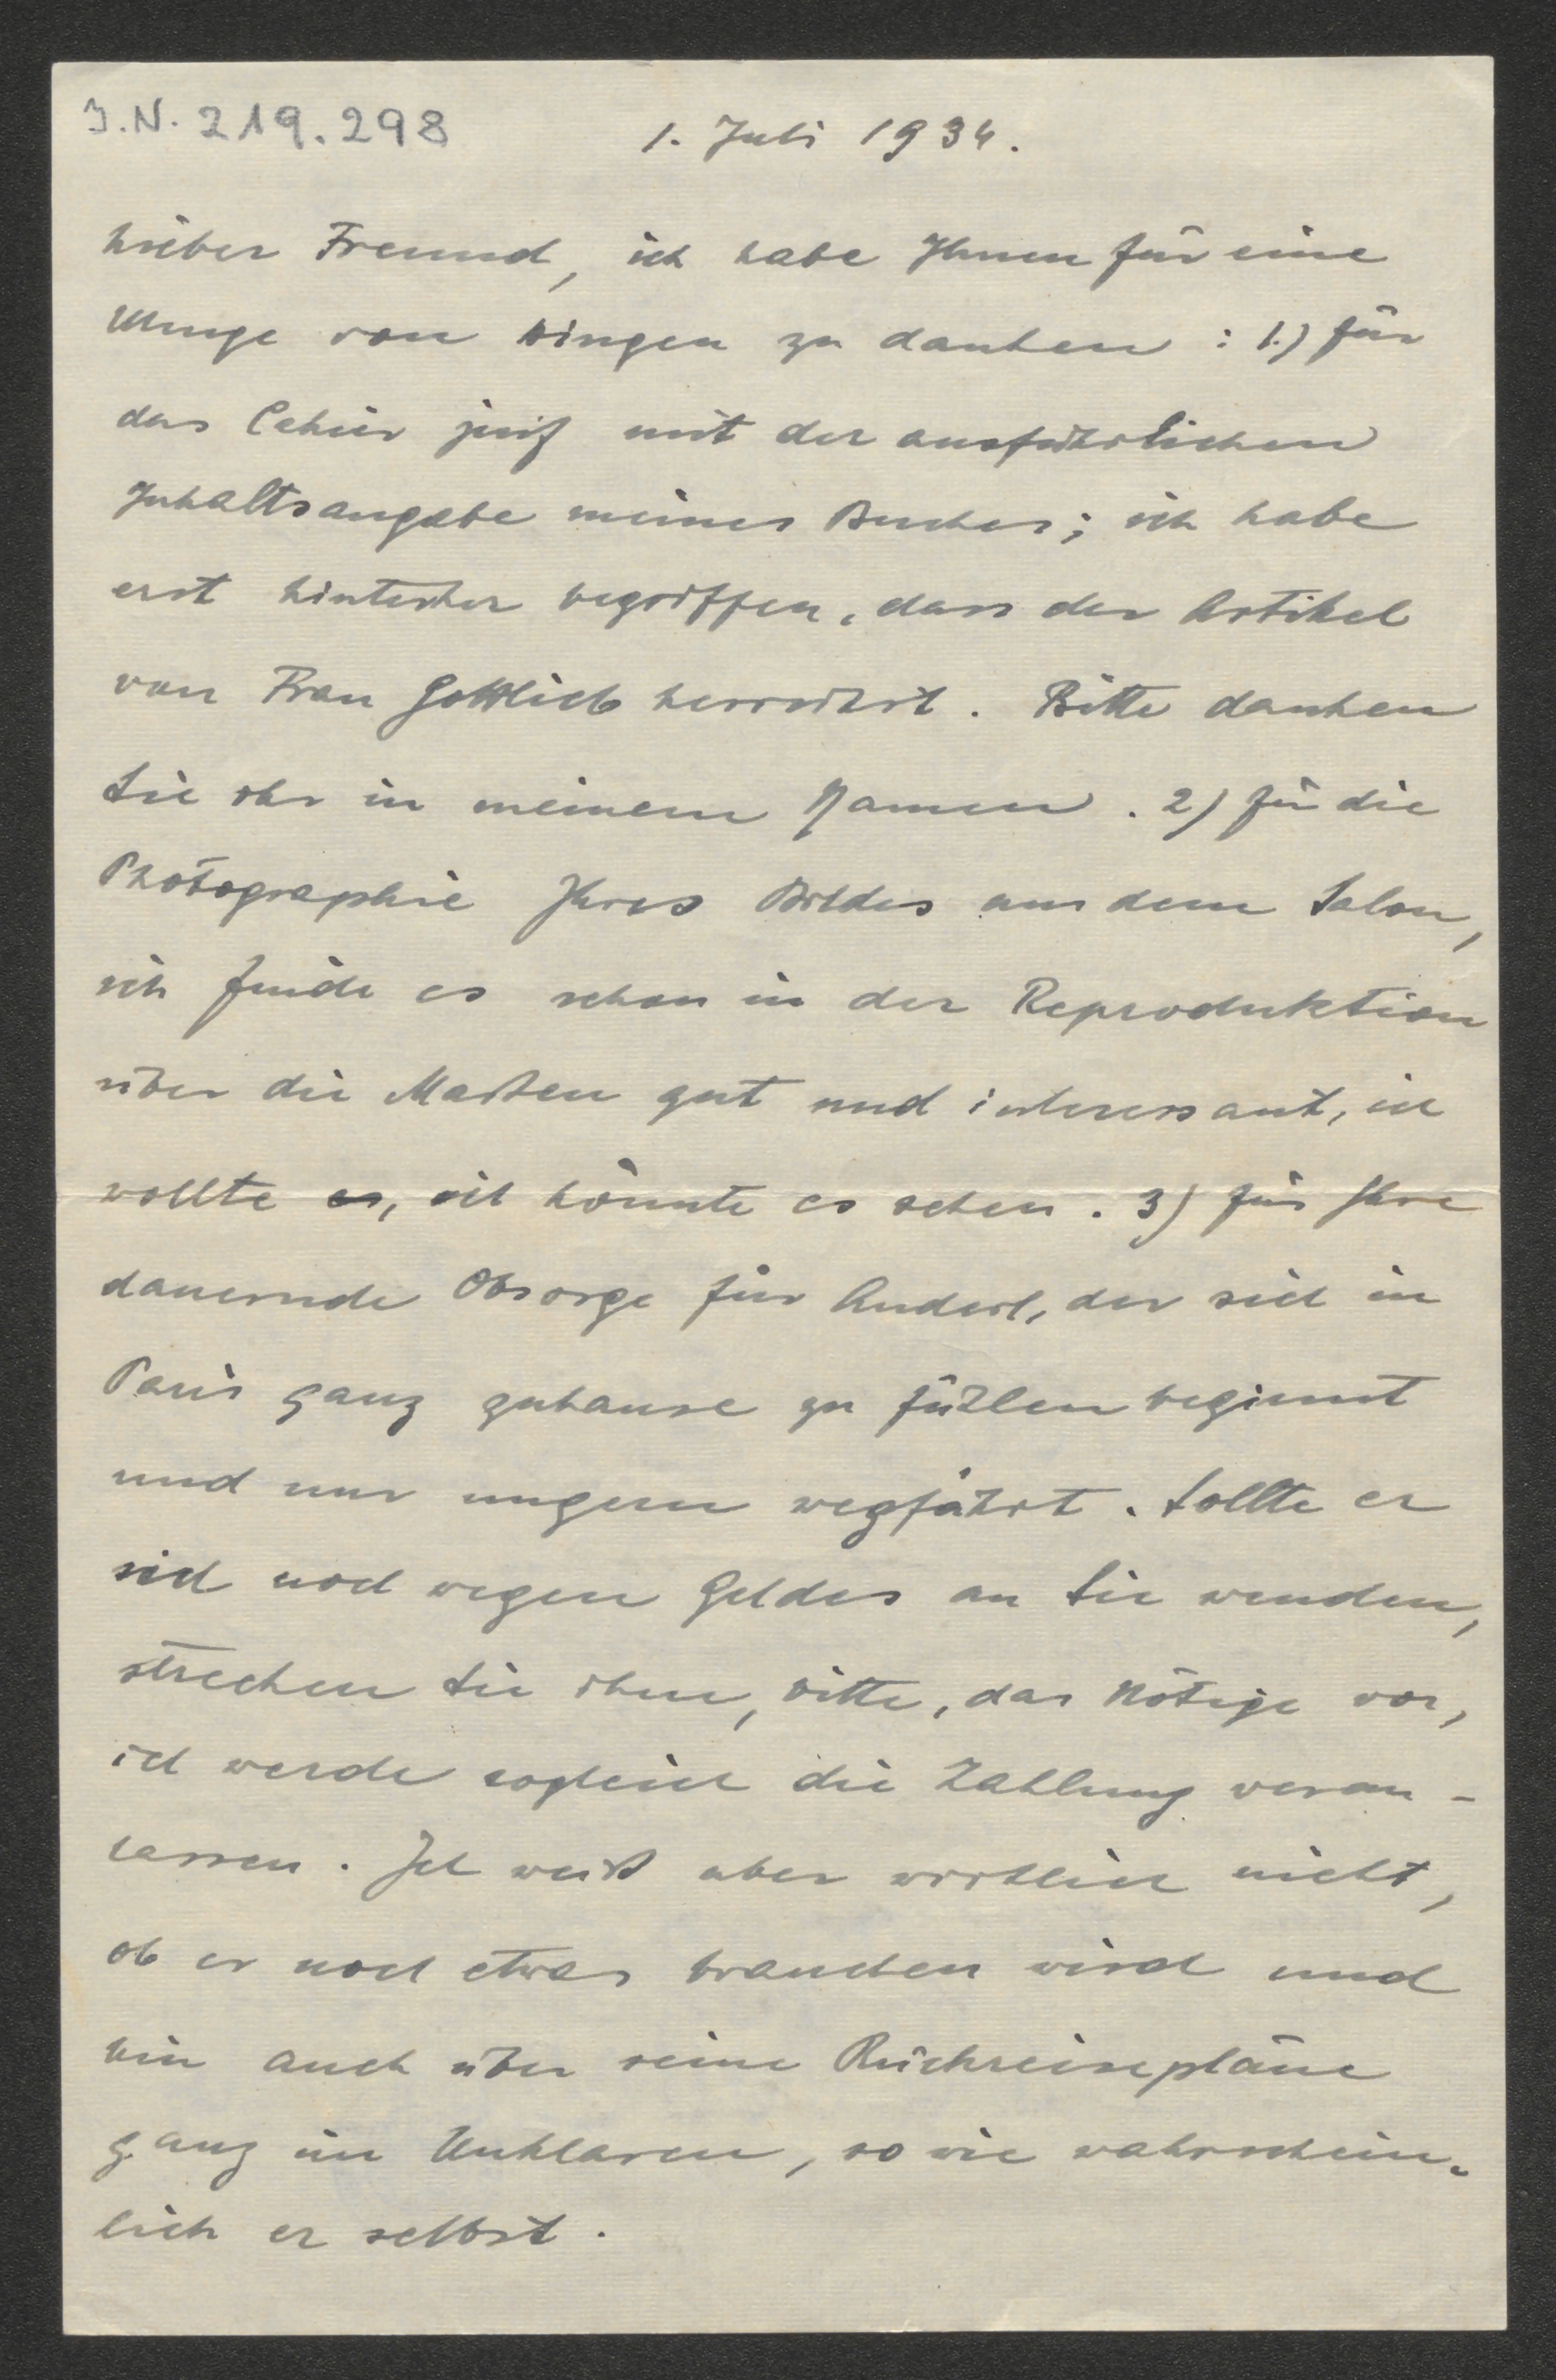 J.N. 219.298
1. Juli 1934.
Lieber Freund, ich habe Ihnen für eine
Menge von Dingen zu danken : 1.) für
das Cahier juif mit der ausführlichen
Inhaltsangabe meines Buches; ich habe
erst hinterher begriffen, dass der Artikel
von Frau Gottlieb herrührt. Bitte danken
Sie ihr in meinem Namen. 2) für die
Photographie Ihres Bildes aus dem Salon,
ich finde es schon in der Reproduktion
über die Maßen gut und interessant, ich
wollte es, ich könnte es sehen. 3) für Ihre
dauernde Obsorge für Anderl, der sich in
Paris ganz zuhause zu fühlen beginnt
und nur ungern wegfährt. Sollte er
sich noch wegen Geldes an Sie wenden,
strecken Sie ihm, bitte, das Nötige vor,
ich werde sogleich die Zahlung veran-
lassen. Ich weiß aber wirklich nicht,
ob er noch etwas brauchen wird und
bin auch über seine Rückreisepläne
ganz im Unklaren, so wie wahrschein-
lich er selbst.